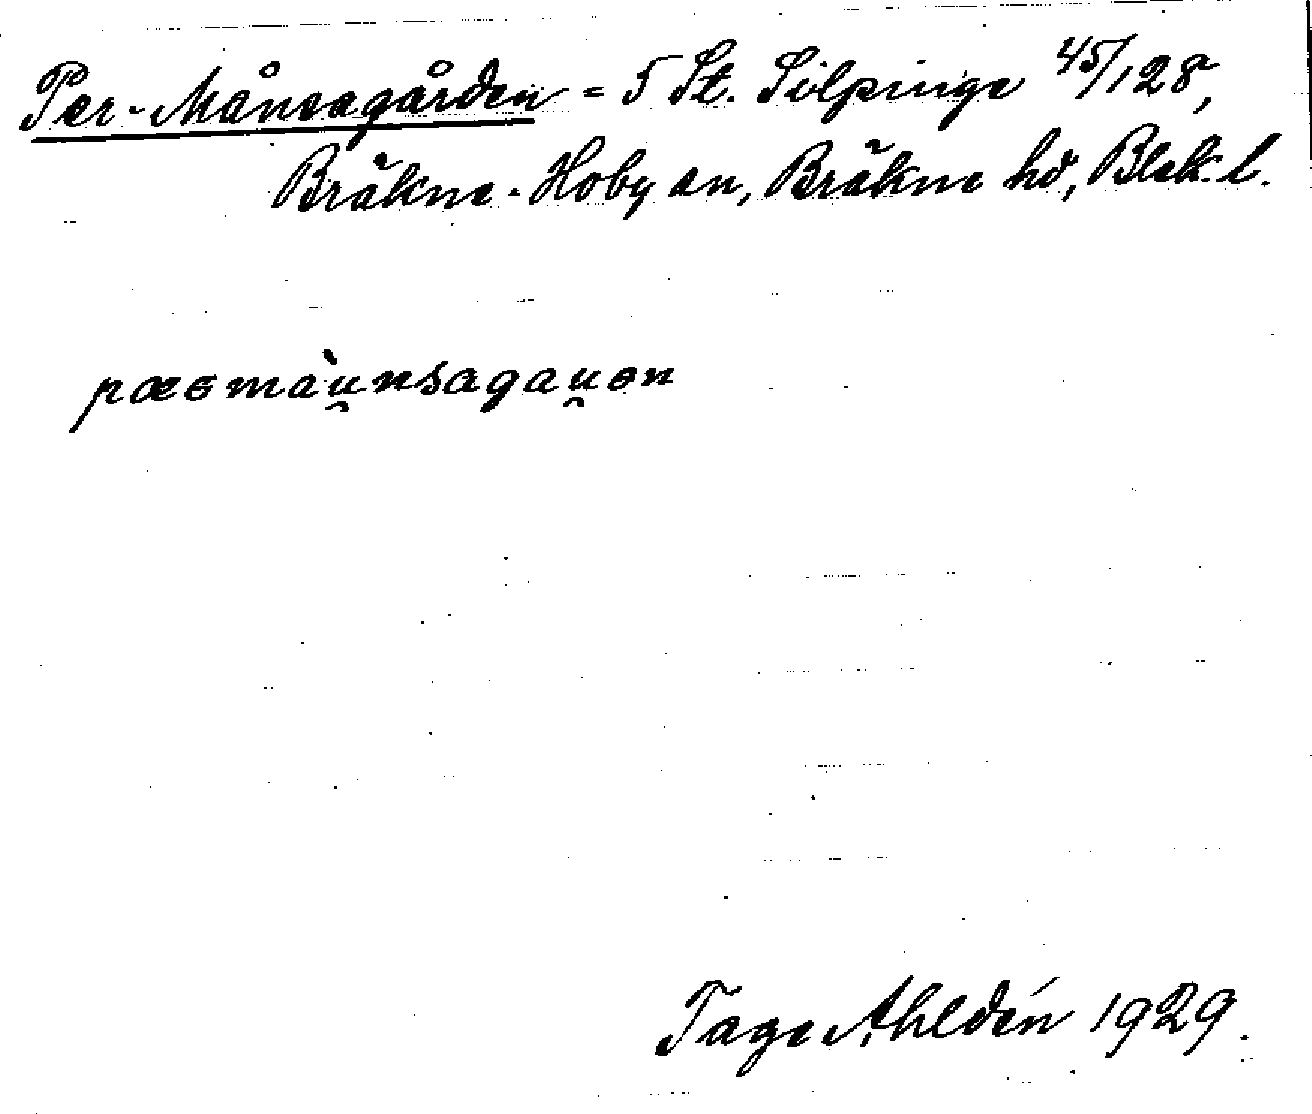 Per-Månsagården = 5 St. Silpinge 45/128,
Bräkne-Hoby sn, Bräkne hd, Blek. l.
pæɞmàu̯nsagau̯ɞn
Tage Ahldén 1929.